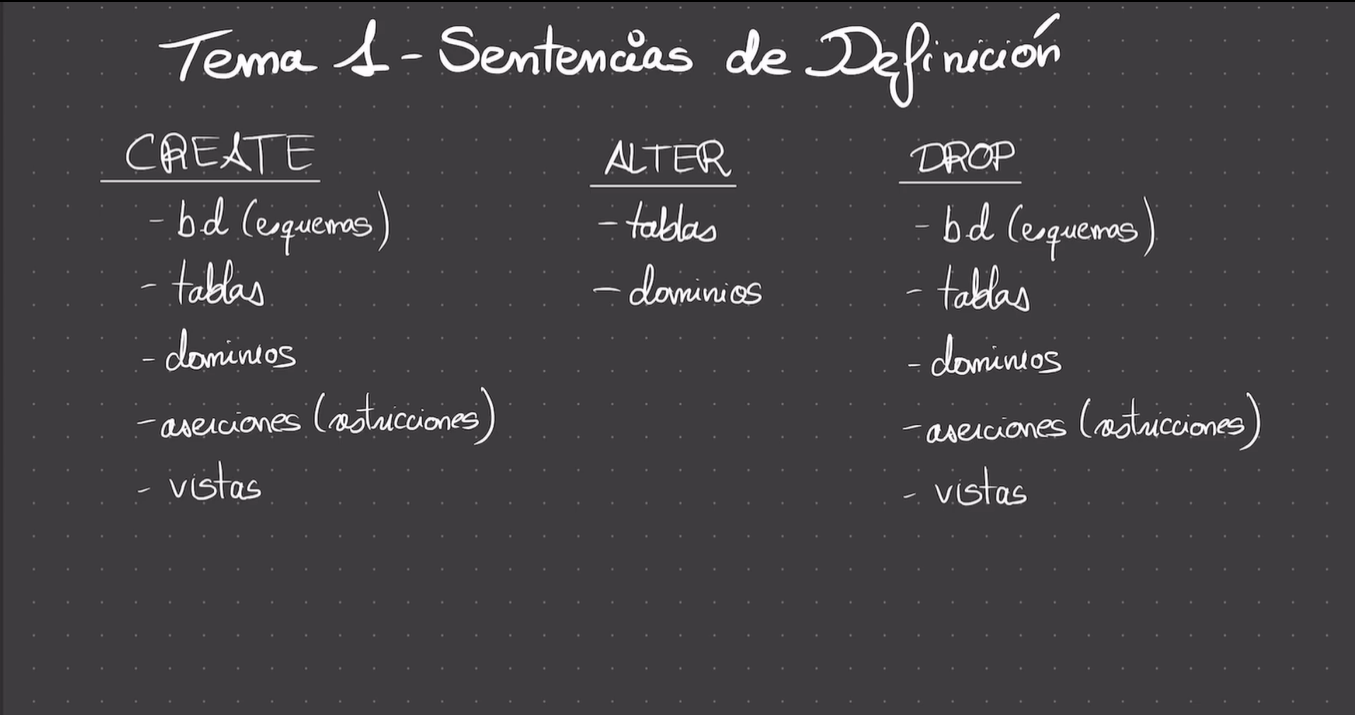 Tema 1 - Sentencias de Definición
CREATE
- bd (esquemas)
- tablas
- dominios
- aserciones (restricciones)
- vistas
ALTER
- tablas
- dominios
DROP
- bd (esquemas)
- tablas
- dominios
- aserciones (restricciones)
- vistas